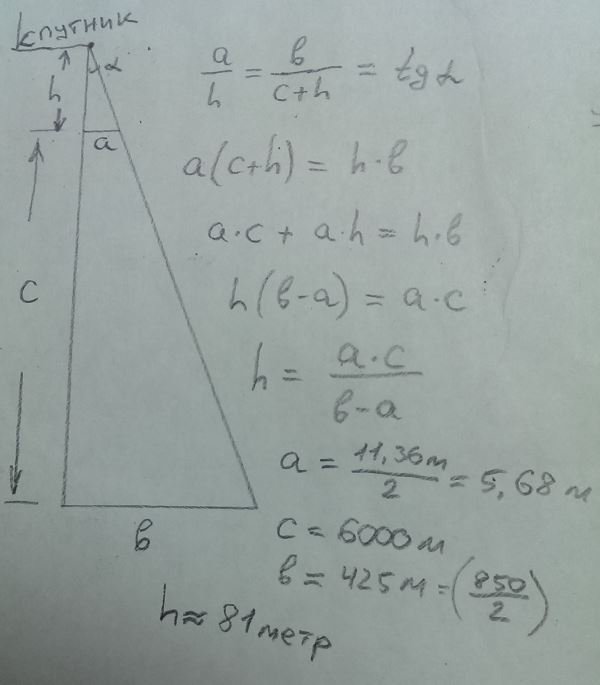 спутник
α
h
a
c
b
a/h = b/(c+h) = tg α
a(c+h) = h·b
a·c + a·h = h·b
h(b-a) = a·c
h = a·c/(b-a)
a = 11,36м/2 = 5,68 м
c = 6000м
b = 425м = (850/2)
h ≈ 81 метр